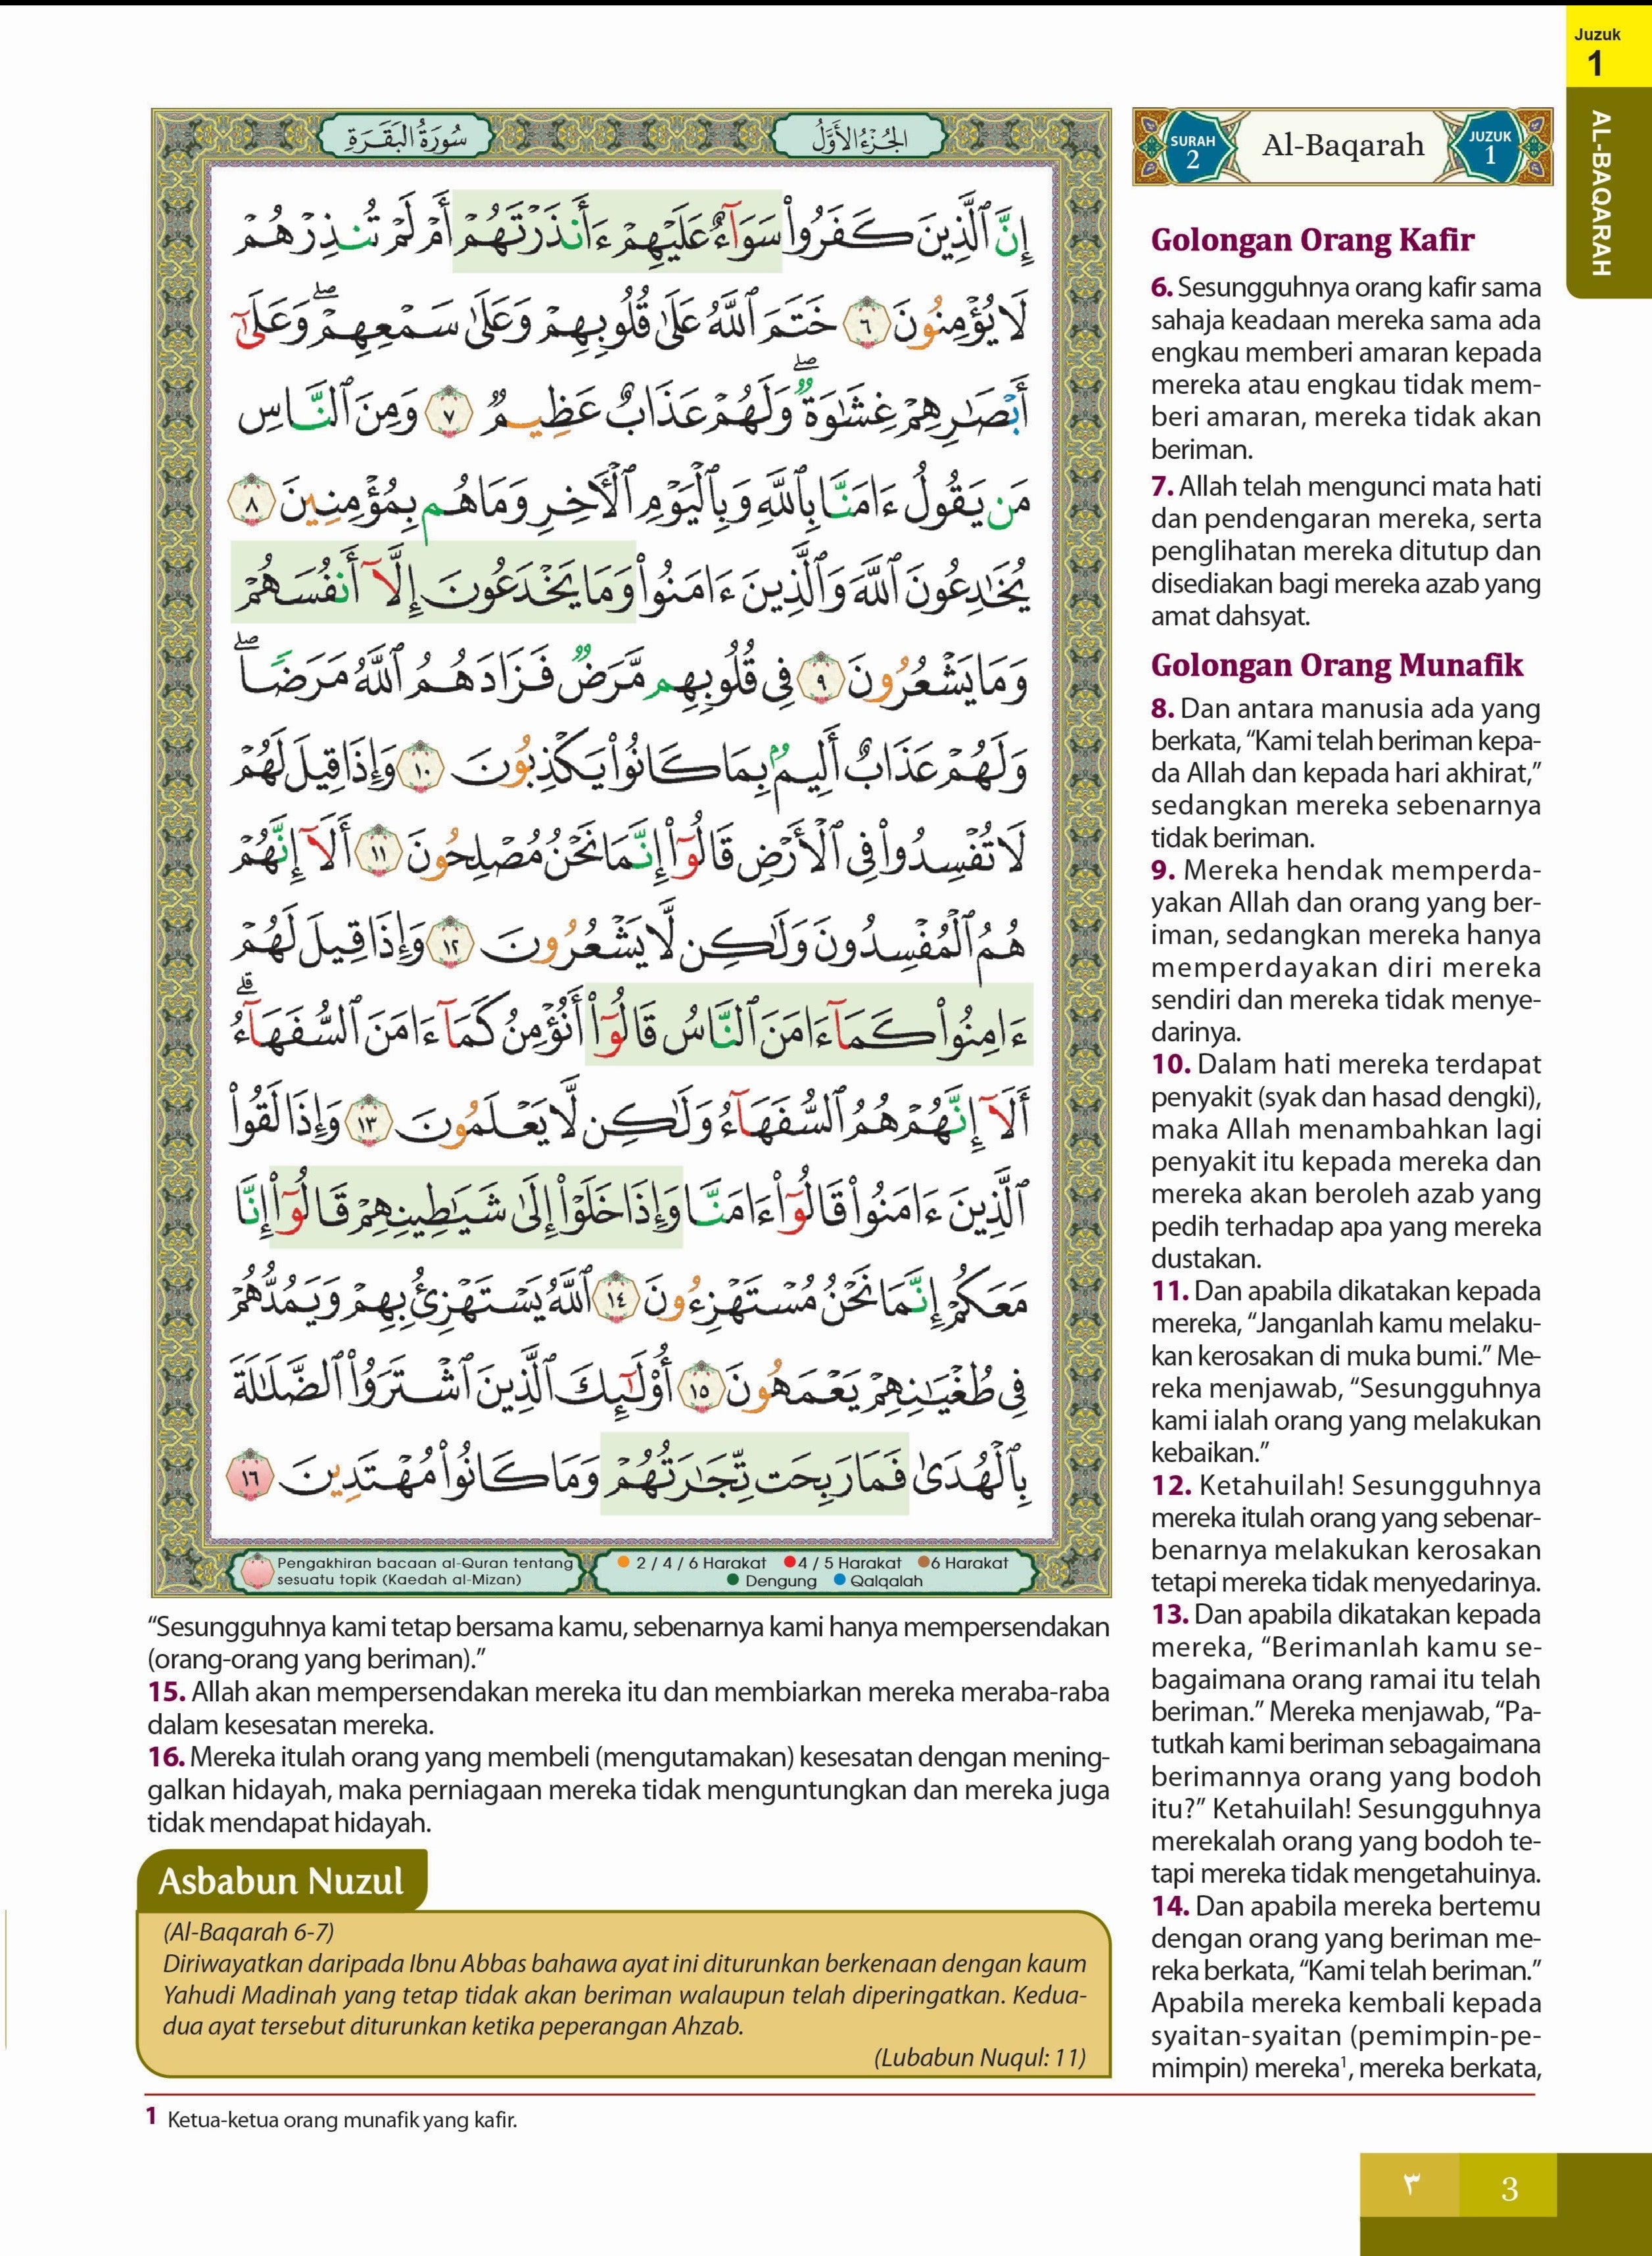 Juzuk
1
AL-BAQARAH
سُورَةُ البَقَرَةِ
الجُزْءُ الأَوَّلُ
SURAH
2
Al-Baqarah
JUZUK
1
إِنَّ ٱلَّذِينَ كَفَرُوا۟ سَوَآءٌ عَلَيْهِمْ ءَأَنذَرْتَهُمْ أَمْ لَمْ تُنذِرْهُمْ
لَا يُؤْمِنُونَ ٦ خَتَمَ ٱللَّهُ عَلَىٰ قُلُوبِهِمْ وَعَلَىٰ سَمْعِهِمْ ۖ وَعَلَىٰٓ
أَبْصَٰرِهِمْ غِشَٰوَةٌ ۖ وَلَهُمْ عَذَابٌ عَظِيمٌ ٧ وَمِنَ ٱلنَّاسِ
مَن يَقُولُ ءَامَنَّا بِٱللَّهِ وَبِٱلْيَوْمِ ٱلْءَاخِرِ وَمَا هُم بِمُؤْمِنِينَ ٨
يُخَٰدِعُونَ ٱللَّهَ وَٱلَّذِينَ ءَامَنُوا۟ وَمَا يَخْدَعُونَ إِلَّآ أَنفُسَهُمْ
وَمَا يَشْعُرُونَ ٩ فِى قُلُوبِهِم مَّرَضٌ فَزَادَهُمُ ٱللَّهُ مَرَضًا ۖ
وَلَهُمْ عَذَابٌ أَلِيمٌۢ بِمَا كَانُوا۟ يَكْذِبُونَ ١٠ وَإِذَا قِيلَ لَهُمْ
لَا تُفْسِدُوا۟ فِى ٱلْأَرْضِ قَالُوٓا۟ إِنَّمَا نَحْنُ مُصْلِحُونَ ١١ أَلَآ إِنَّهُمْ
هُمُ ٱلْمُفْسِدُونَ وَلَٰكِن لَّا يَشْعُرُونَ ١٢ وَإِذَا قِيلَ لَهُمْ
ءَامِنُوا۟ كَمَآ ءَامَنَ ٱلنَّاسُ قَالُوٓا۟ أَنُؤْمِنُ كَمَآ ءَامَنَ ٱلسُّفَهَآءُ ۗ
أَلَآ إِنَّهُمْ هُمُ ٱلسُّفَهَآءُ وَلَٰكِن لَّا يَعْلَمُونَ ١٣ وَإِذَا لَقُوا۟
ٱلَّذِينَ ءَامَنُوا۟ قَالُوٓا۟ ءَامَنَّا وَإِذَا خَلَوْا۟ إِلَىٰ شَيَٰطِينِهِمْ قَالُوٓا۟ إِنَّا
مَعَكُمْ إِنَّمَا نَحْنُ مُسْتَهْزِءُونَ ١٤ ٱللَّهُ يَسْتَهْزِئُ بِهِمْ وَيَمُدُّهُمْ
فِى طُغْيَٰنِهِمْ يَعْمَهُونَ ١٥ أُو۟لَٰٓئِكَ ٱلَّذِينَ ٱشْتَرَوُا۟ ٱلضَّلَٰلَةَ
بِٱلْهُدَىٰ فَمَا رَبِحَت تِّجَٰرَتُهُمْ وَمَا كَانُوا۟ مُهْتَدِينَ ١٦
Pengakhiran bacaan al-Quran tentang
sesuatu topik (Kaedah al-Mizan)
2 / 4 / 6 Harakat 4 / 5 Harakat 6 Harakat
Dengung Qalqalah
Golongan Orang Kafir
6. Sesungguhnya orang kafir sama
sahaja keadaan mereka sama ada
engkau memberi amaran kepada
mereka atau engkau tidak mem-
beri amaran, mereka tidak akan
beriman.
7. Allah telah mengunci mata hati
dan pendengaran mereka, serta
penglihatan mereka ditutup dan
disediakan bagi mereka azab yang
amat dahsyat.
Golongan Orang Munafik
8. Dan antara manusia ada yang
berkata, “Kami telah beriman kepa-
da Allah dan kepada hari akhirat,”
sedangkan mereka sebenarnya
tidak beriman.
9. Mereka hendak memperda-
yakan Allah dan orang yang ber-
iman, sedangkan mereka hanya
memperdayakan diri mereka
sendiri dan mereka tidak menye-
darinya.
10. Dalam hati mereka terdapat
penyakit (syak dan hasad dengki),
maka Allah menambahkan lagi
penyakit itu kepada mereka dan
mereka akan beroleh azab yang
pedih terhadap apa yang mereka
dustakan.
11. Dan apabila dikatakan kepada
mereka, “Janganlah kamu melaku-
kan kerosakan di muka bumi.” Me-
reka menjawab, “Sesungguhnya
kami ialah orang yang melakukan
kebaikan.”
12. Ketahuilah! Sesungguhnya
mereka itulah orang yang sebenar-
benarnya melakukan kerosakan
tetapi mereka tidak menyedarinya.
13. Dan apabila dikatakan kepada
mereka, “Berimanlah kamu se-
bagaimana orang ramai itu telah
beriman.” Mereka menjawab, “Pa-
tutkah kami beriman sebagaimana
berimannya orang yang bodoh
itu?” Ketahuilah! Sesungguhnya
merekalah orang yang bodoh te-
tapi mereka tidak mengetahuinya.
14. Dan apabila mereka bertemu
dengan orang yang beriman me-
reka berkata, “Kami telah beriman.”
Apabila mereka kembali kepada
syaitan-syaitan (pemimpin-pe-
mimpin) mereka¹, mereka berkata,
“Sesungguhnya kami tetap bersama kamu, sebenarnya kami hanya mempersendakan
(orang-orang yang beriman).”
15. Allah akan mempersendakan mereka itu dan membiarkan mereka meraba-raba
dalam kesesatan mereka.
16. Mereka itulah orang yang membeli (mengutamakan) kesesatan dengan mening-
galkan hidayah, maka perniagaan mereka tidak menguntungkan dan mereka juga
tidak mendapat hidayah.
Asbabun Nuzul
(Al-Baqarah 6-7)
Diriwayatkan daripada Ibnu Abbas bahawa ayat ini diturunkan berkenaan dengan kaum
Yahudi Madinah yang tetap tidak akan beriman walaupun telah diperingatkan. Kedua-
dua ayat tersebut diturunkan ketika peperangan Ahzab.
(Lubabun Nuqul: 11)
1 Ketua-ketua orang munafik yang kafir.
٣
3